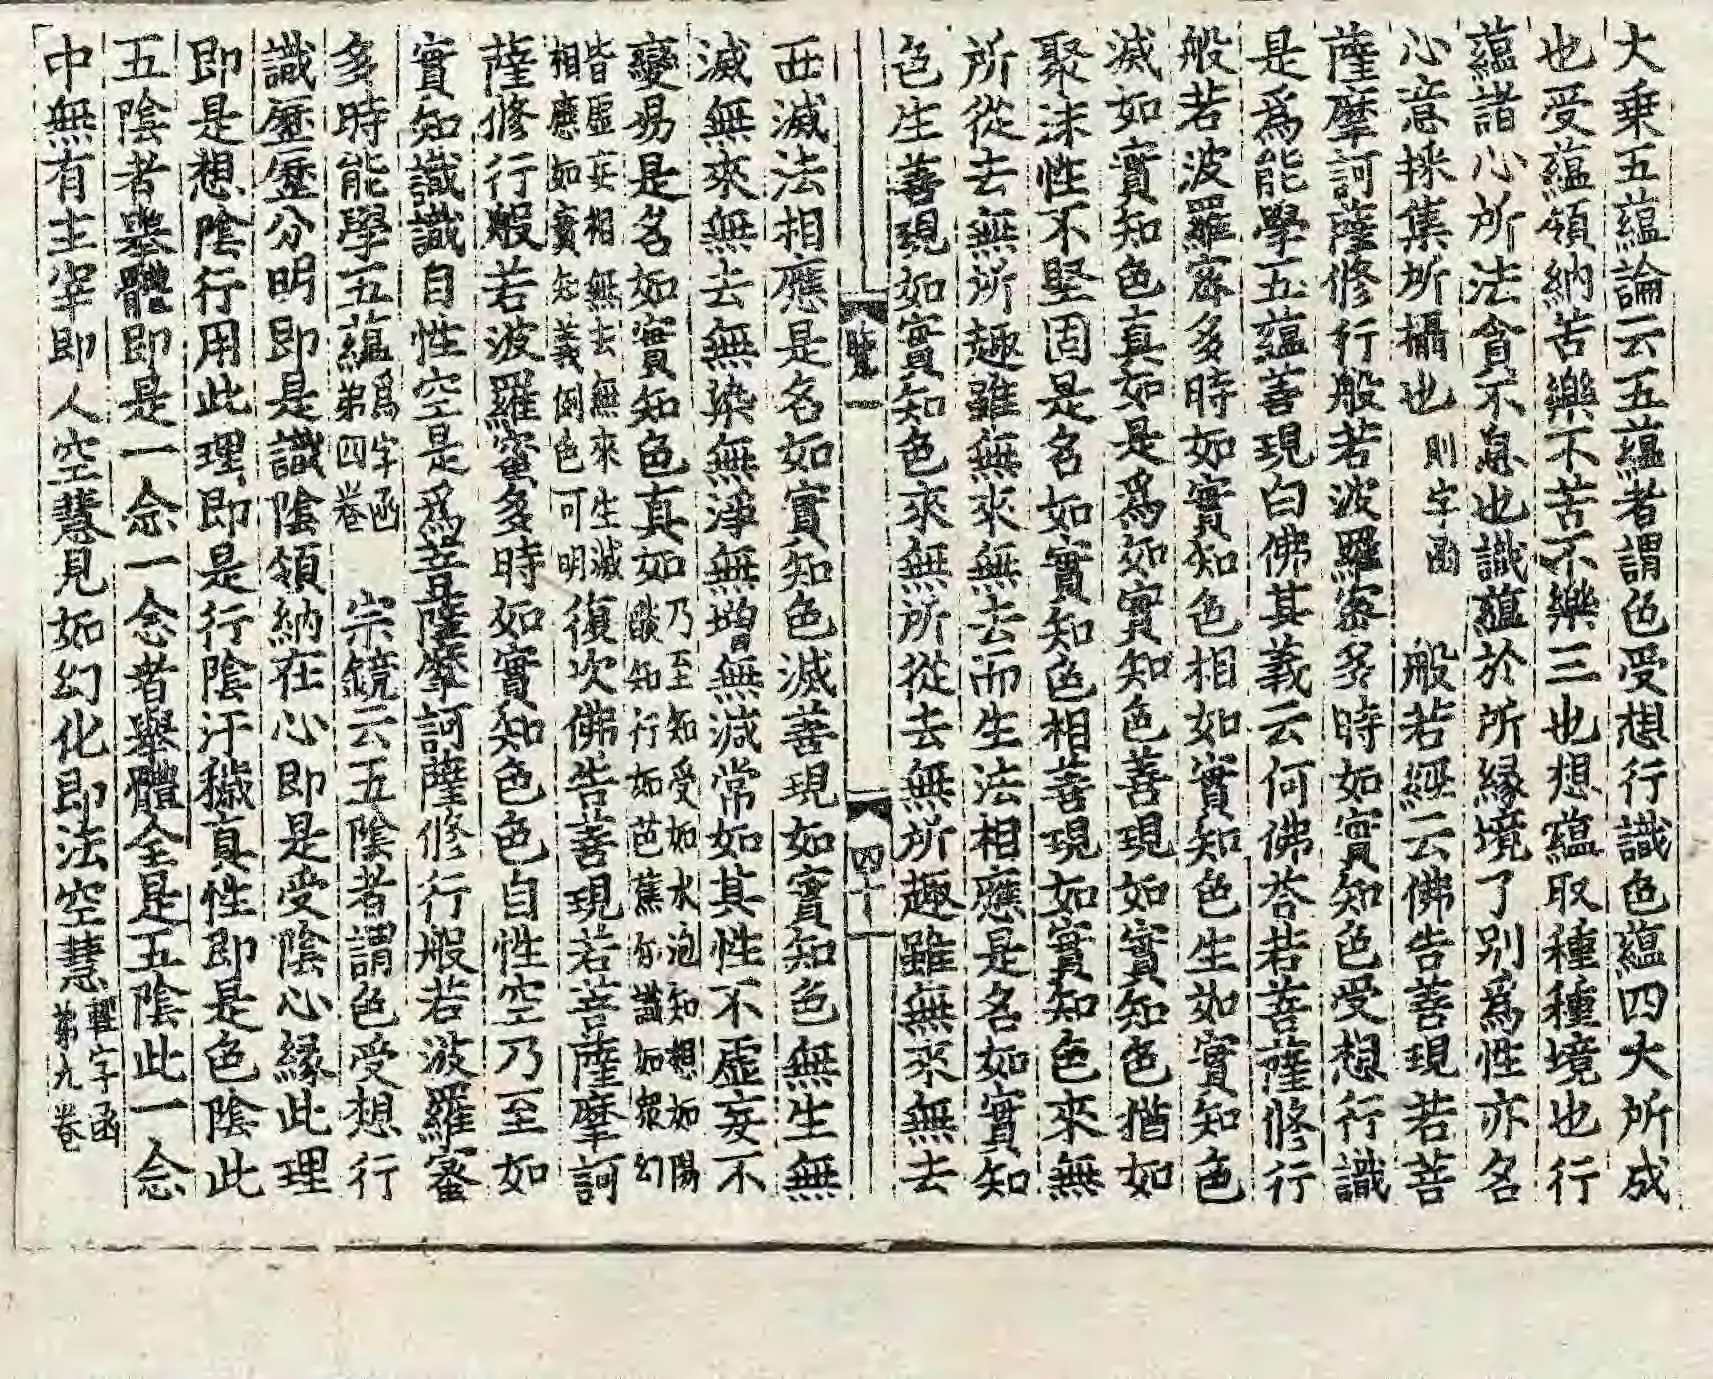 大乗五蘊論云五蘊者謂色受想行識色蘊四大所成
也受蘊領納苦樂不苦不樂三也想蘊取種種境也行
蘊諸心所法貪不息也識蘊於所緣境了别爲性亦名
心意採集所攝也則字函　般若經云佛告善現若菩
薩摩訶薩修行般若波羅蜜多時如實知色受想行識
是爲能學五蘊善現白佛其義云何佛荅若菩薩修行
般若波羅蜜多時如實知色相如實知色生如實知色
滅如實知色真如是爲如實知色善現如實知色猶如
聚沫性不堅固是名如實知色相善現如實知色來無
所從去無所趣雖無來無去而生法相應是名如實知
色生善現如實知色來無所從去無所趣雖無來無去
覽一　四十
而滅法相應是名如實知色滅善現如實知色無生無
滅無來無去無染無淨無增無減常如其性不虛妄不
變易是名如實知色真如乃至知受如水泡知想如陽
燄知行如芭蕉知識如衆幻
皆虛妄相無去無來生滅
相應如實知義例色可明復次佛告善現若菩薩摩訶
薩修行般若波羅蜜多時如實知色色自性空乃至如
實知識識自性空是爲菩薩摩訶薩修行般若波羅蜜
多時能學五蘊爲字函
第四卷　宗鏡云五陰者謂色受想行
識歷歷分明即是識陰領納在心即是受陰心緣此理
即是想陰行用此理即是行陰汙穢真性即是色陰此
五陰者舉體即是一念一念者舉體全是五陰此一念
中無有主宰即人空慧見如幻化即法空慧
字函
第九卷